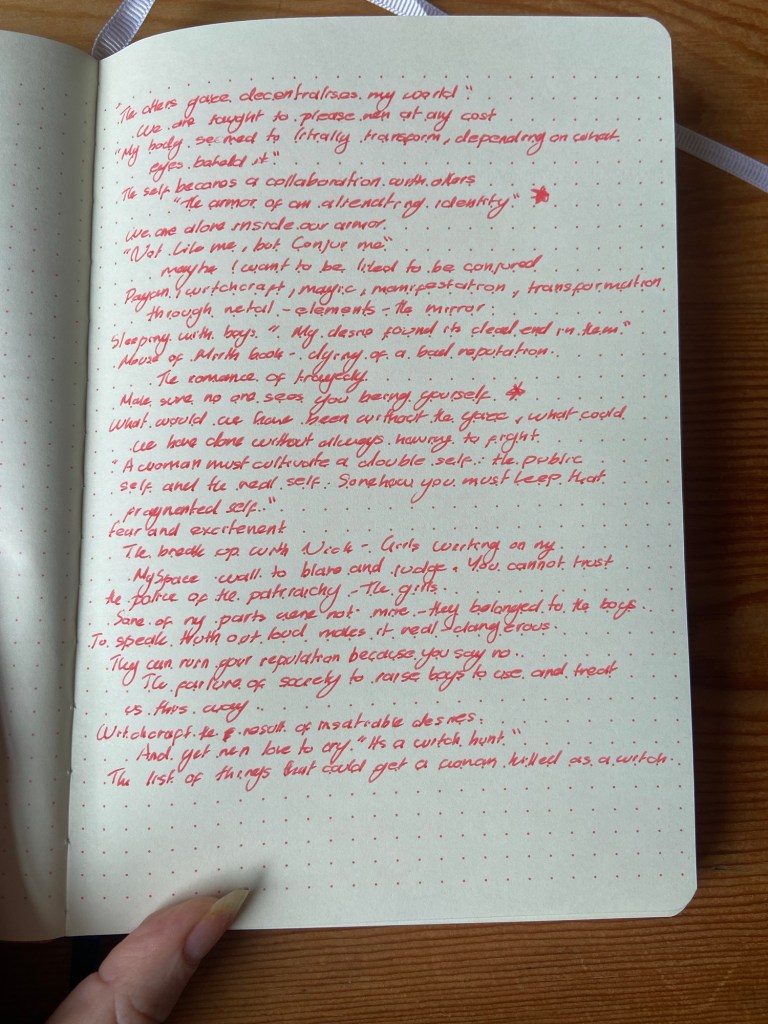 "The others gaze decentralises my world"
We are taught to please men at any cost
"My body seemed to litrally transform, depending on what
eyes beheld it"
The self becomes a collaboration with others
"The armor of an alienating identity" ★
We are alone inside our armor.
"Not like me, but Conjur me"
maybe I want to be liked to be conjured
witchcraft, magic, manifestation, transformation
through - elements - the mirror.
Sleeping with boys. "My desire found its dead end in them."
House of Mirth book - dying of a bad reputation.
The romance of tragedy.
Make sure no one sees you being yourself. ★
What would we have been without the gaze, what could
we have done without always having to fight.
"A woman must cultivate a double self: the public
self and the real self. Somehow you must keep that
fragmented self."
fear and excitement
The break up with Nick - Girls writing on my
MySpace wall to blame and judge. You cannot trust
the police of the patriarchy - The girls.
Some of my parts were not mine - they belonged to the boys.
To speak truth out loud makes it real - dangerous.
They can ruin your reputation because you say no.
The failure of society to raise boys to use and treat
us this way.
Witchcraft the result of insatiable desires.
And yet men love to cry. "Its a witch hunt."
The list of things that could get a woman killed as a witch.